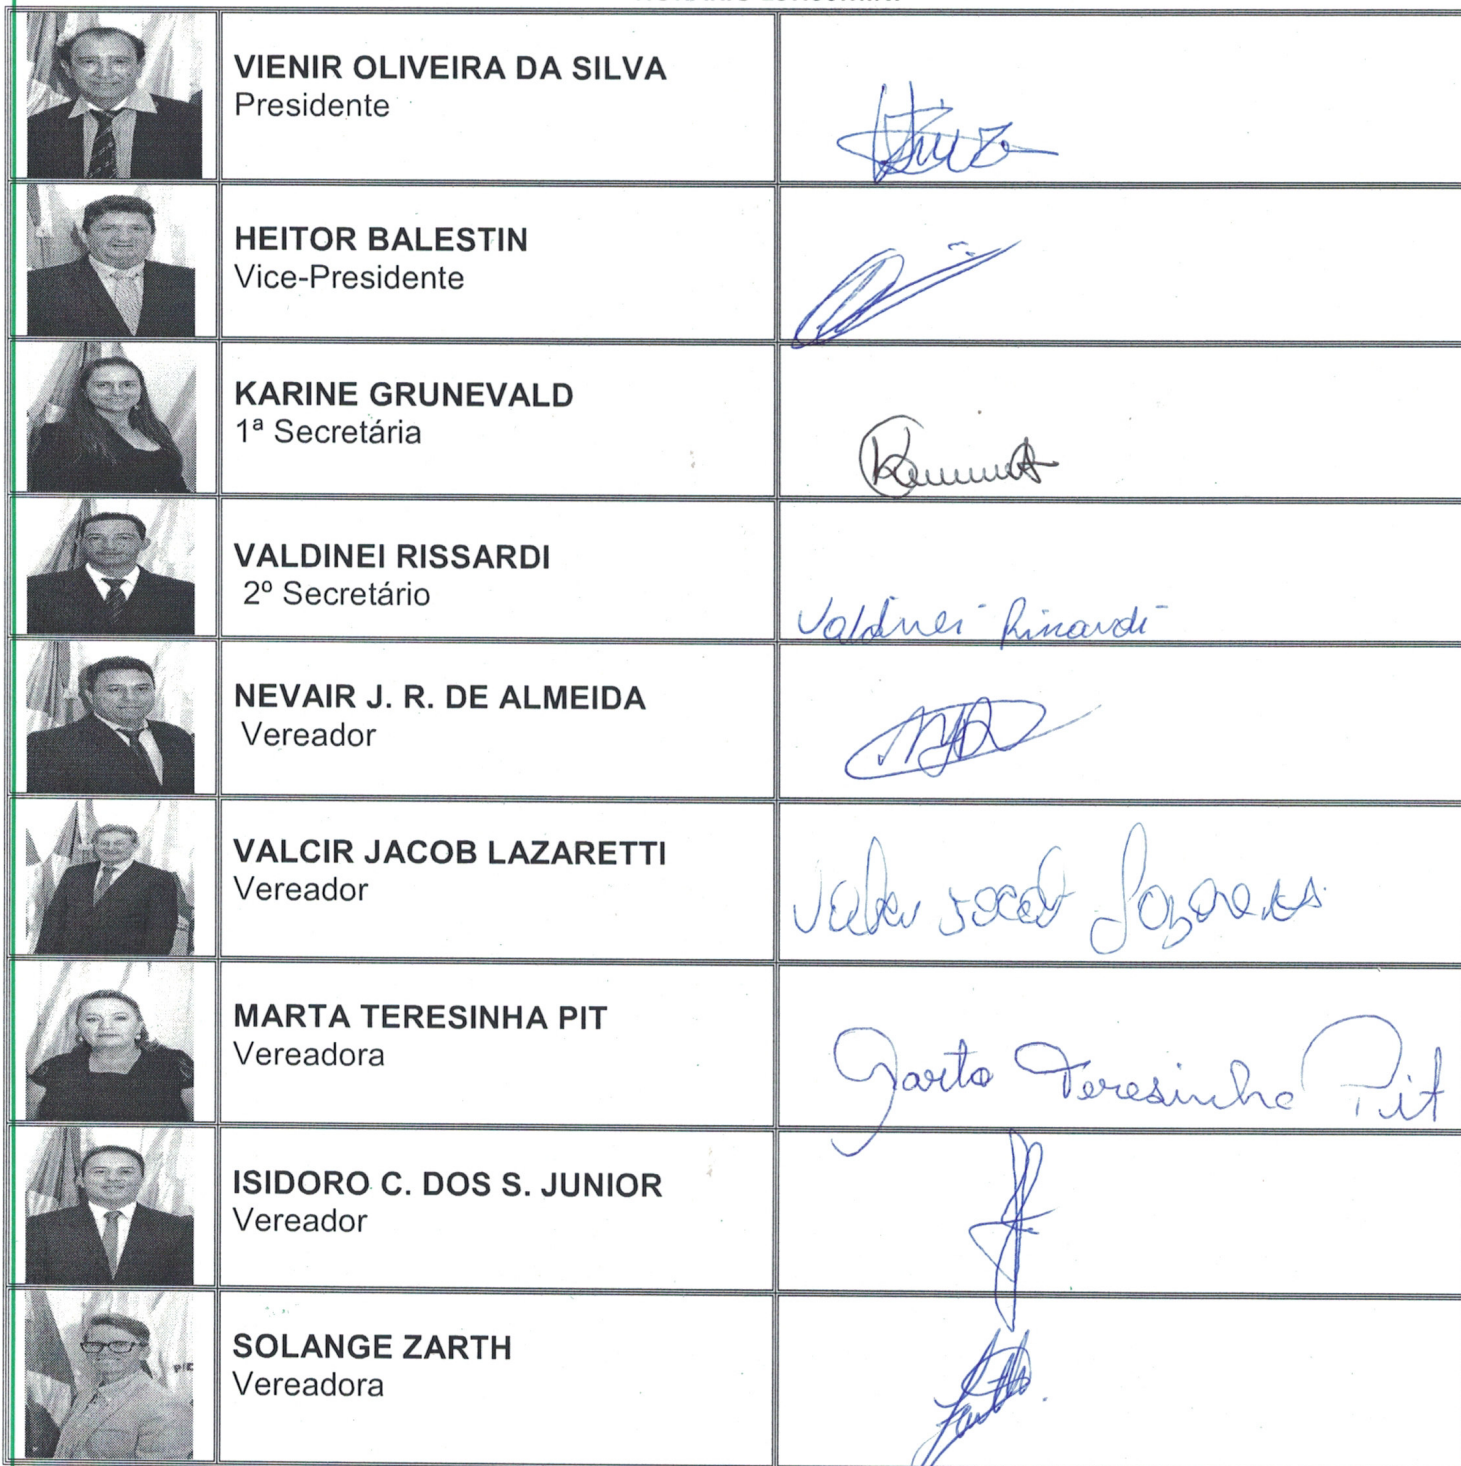 VIENIR OLIVEIRA DA SILVA
Presidente
HEITOR BALESTIN
Vice-Presidente
KARINE GRUNEVALD
1ª Secretária
VALDINEI RISSARDI
2º Secretário
Valdinei Rissardi
NEVAIR J. R. DE ALMEIDA
Vereador
VALCIR JACOB LAZARETTI
Vereador
MARTA TERESINHA PIT
Vereadora
Marta Teresinha Pit
ISIDORO C. DOS S. JUNIOR
Vereador
SOLANGE ZARTH
Vereadora